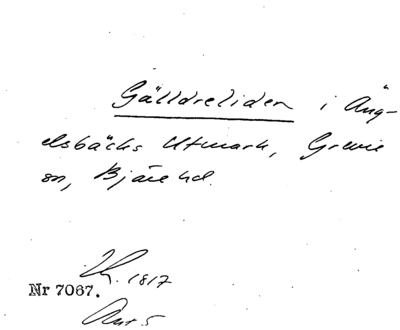 Gälldreliden i Äng-
elsbäcks Utmark, Grevie
sn, Bjäre hd.
1817
Nr 7067.